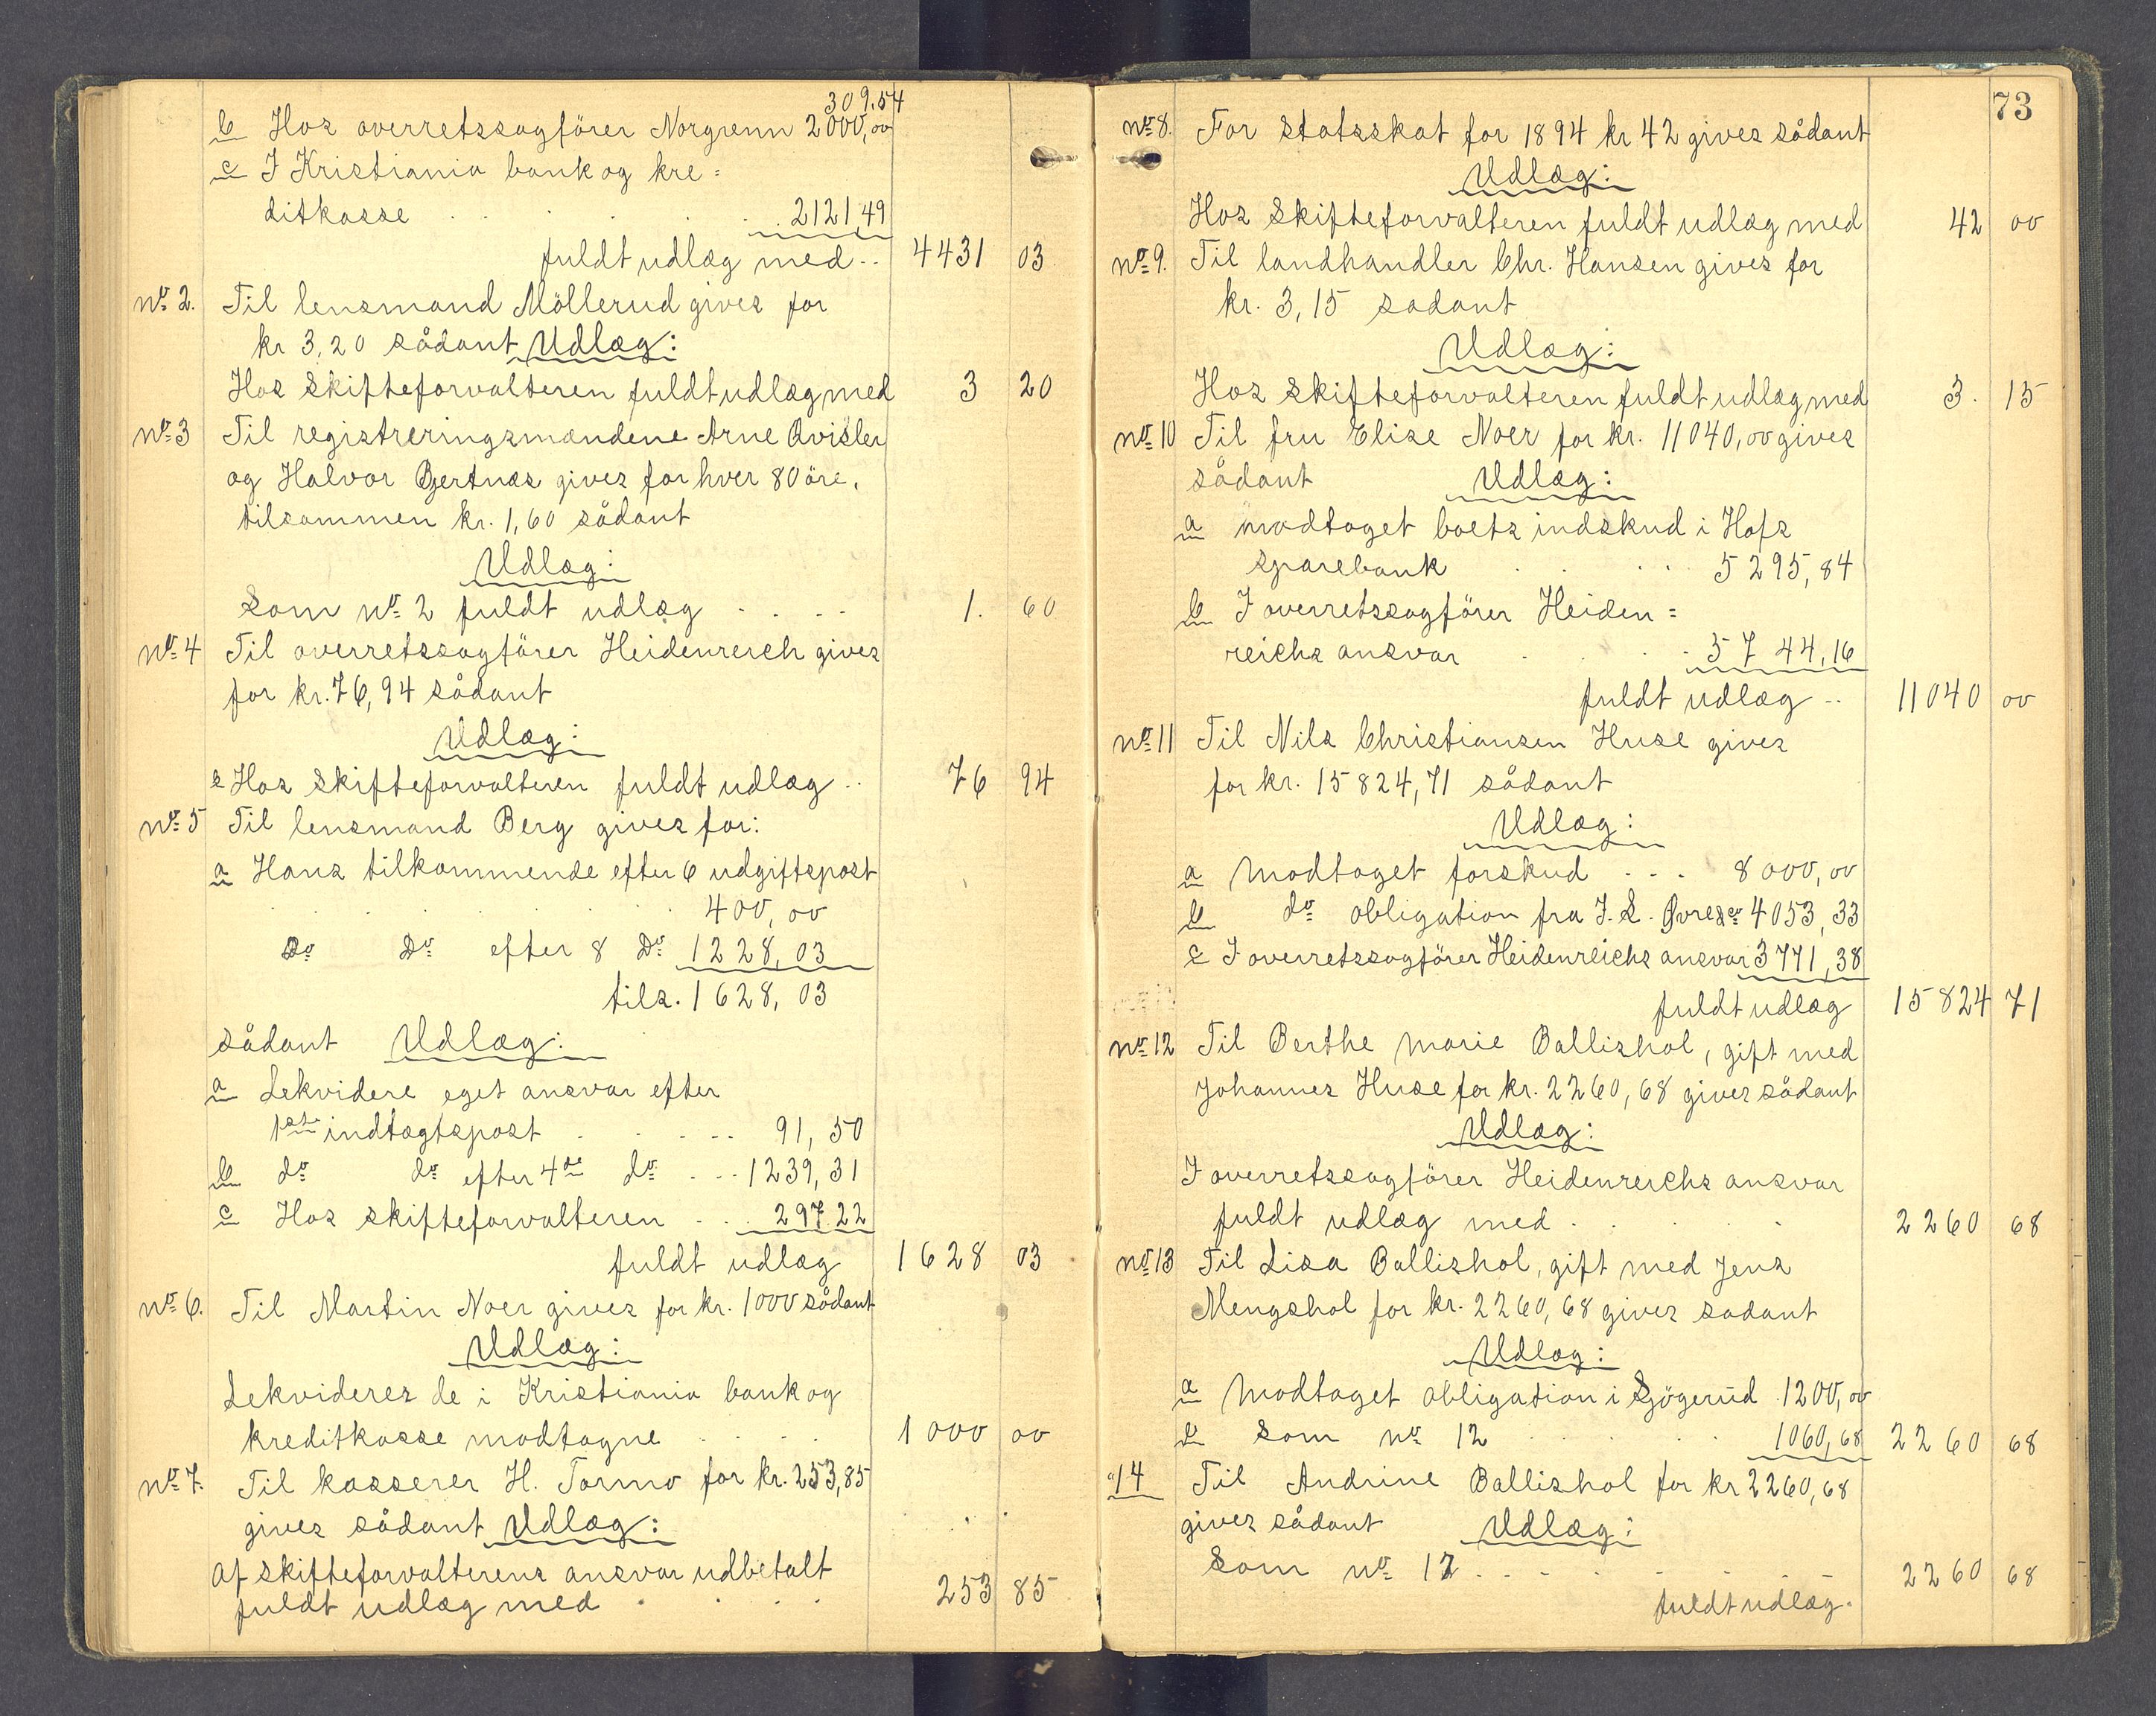 309.54
b Hos overretssagfører Norgrenn 2000,00
c I Kristiania bank og kre=
ditkasse . . . . . 2121,49
fuldt udlæg med .. 4431 03
No 2. Til lensmand Möllerud gives for
kr 3,20 sådant Udlæg:
Hos Skifteforvalteren fuldt udlæg med 3 20
No 3 Til registreringsmændene Arne Qvisler
og Halvor Gjertnæs gives for hver 80 öre,
tilsammen kr. 1,60 sådant
Udlæg:
Som No 2 fuldt udlæg . . . . 1. 60
No 4 Til overretssagförer Heidenreich gives
for kr. 76,94 sådant
Udlæg:
Hos Skifteforvalteren fuldt udlæg .. 76 94
No 5 Til lensmand Berg gives for:
a Hans tilkommende efter 6 udgiftspost
. . . . . . 400,00
Do Do efter 8 Do 1228,03
tils. 1628,03
sådant Udlæg:
a Lekvidere eget ansvar efter
1ste indtægtspost . . . . 91,50
b do do efter 4de do . . . 1239,31
c Hos skifteforvalteren . . . 297.22
fuldt udlæg 1628 03
No 6. Til Martin Noer gives for kr. 1000 sådant
Udlæg:
Lekvideres de i Kristiania bank og
kreditkasse modtagne . . . . 1000 00
No 7. Til kasserer H. Tormo for kr. 253,85
gives sådant Udlæg:
Af skifteforvalterens ansvar udbetalt
fuldt udlæg med . . . . 253 85
73
No 8. For Statsskat for 1894 kr 42 gives sådant
Udlæg:
Hos Skifteforvalteren fuldt udlæg med 42 00
No 9. Til landhandler Chr. Hansen gives for
kr. 3,15 sadant
Udlæg:
Hos Skifteforvalteren fuldt udlæg med 3. 15
No 10 Til fru Elise Noer for kr. 11040,00 gives
sådant Udlæg:
a modtaget boets indskud i Hofs
Sparebank . . . . 5295,84
b I overretssagförer Heiden=
reichs ansvar . . . . 5744,16
fuldt udlæg .. 11040 00
No 11 Til Nils Christiansen Huse gives
for kr. 15824,71 sådant
Udlæg:
a Modtaget forskud . . . 8000,00
b do obligation fra J. L. 4053,33
c I overretssagförer Heidenreichs ansvar 3771,38
fuldt udlæg 15824 71
No 12 Til Berthe Marie Ballishol, gift med
Johannes Huse for kr. 2260,68 gives sådant
Udlæg:
I overretssagförer Heidenreichs ansvar
fuldt udlæg med . . . . 2260 68
No 13 Til Lisa Ballishol, gift med Jens
Mengshol for kr. 2260,68 gives sadant
Udlæg:
a Modtaget obligation i Sjögerud 1200,00
b Som No 12 . . . . 1060,68 2260 68
14 Til Andrine Ballishol for kr 2260,68
gives sådant Udlæg:
Som No 12 . . . . . . 2260 68
fuldt udlæg.